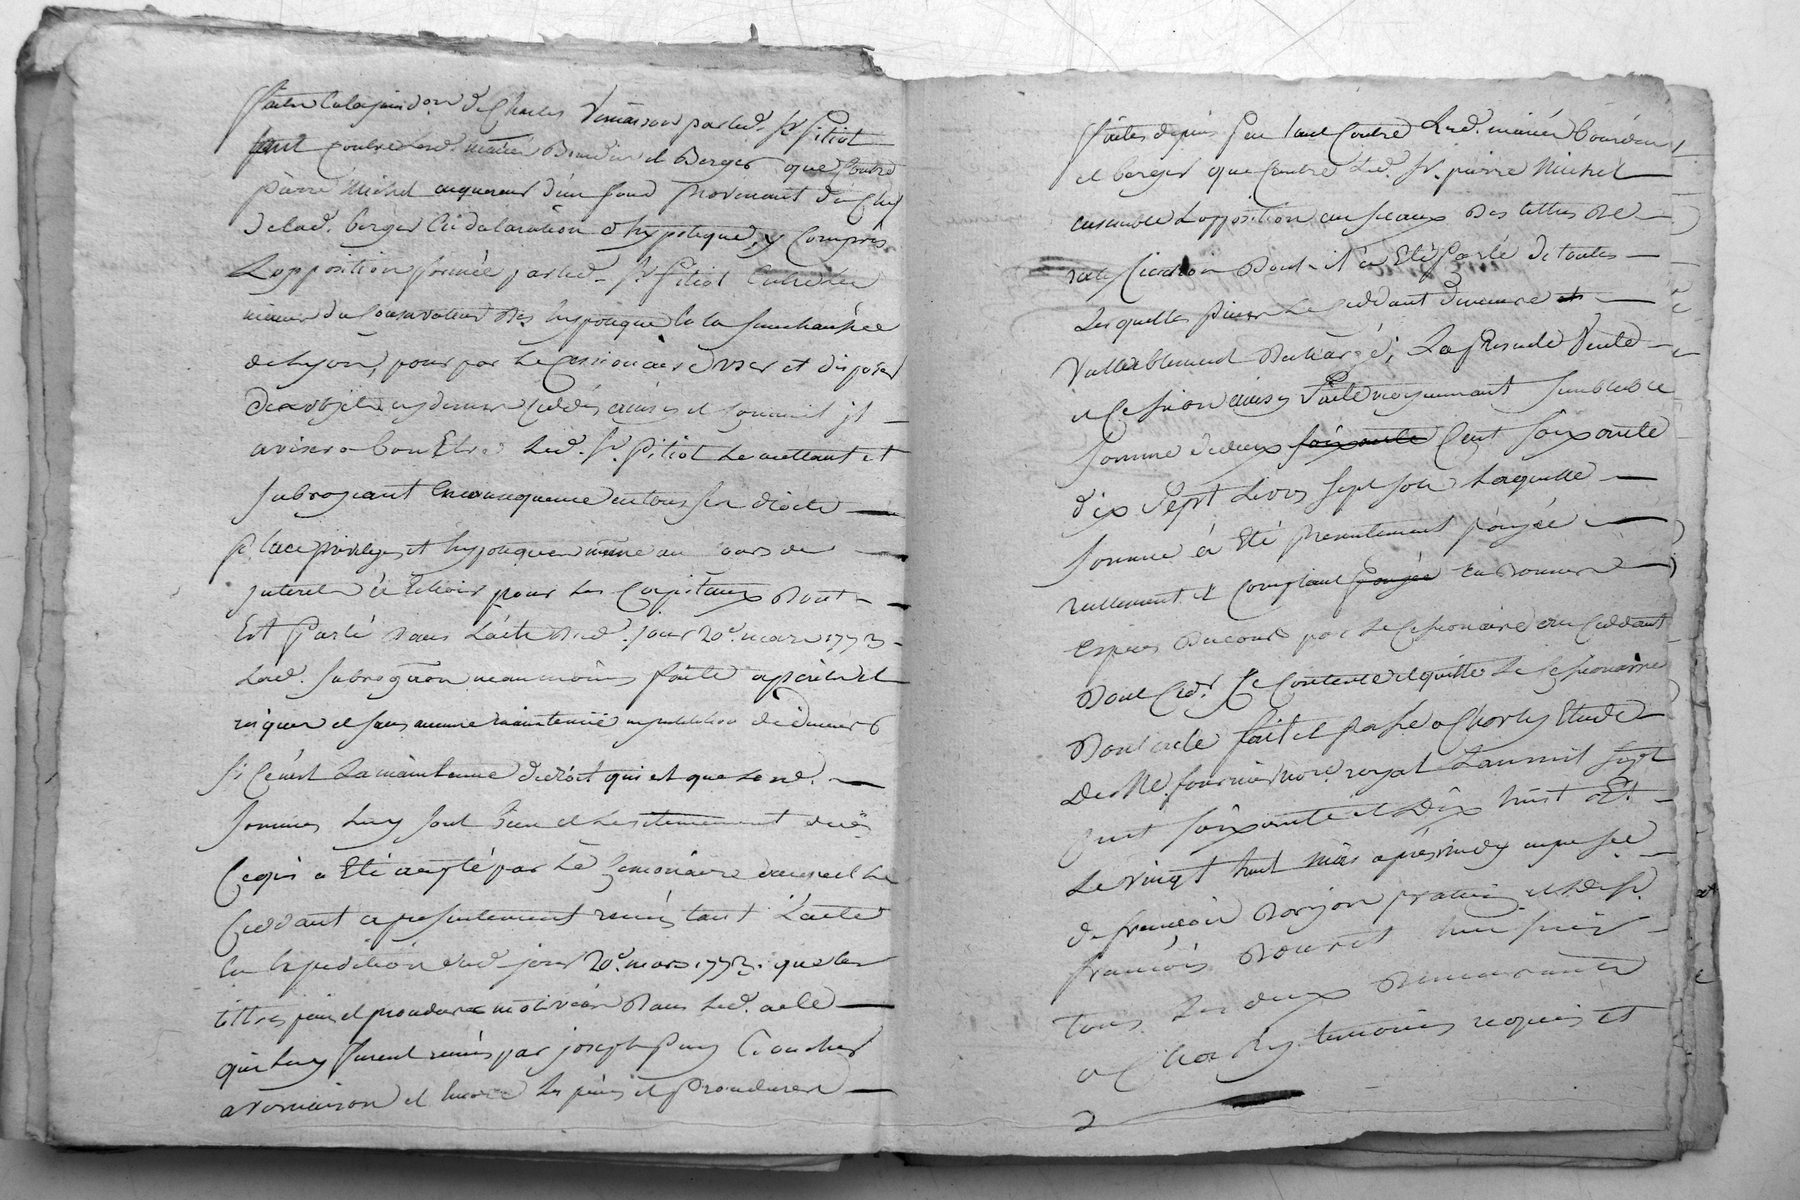 de Charles par led. Sr. Pitiot
contre lesd. mariés Bourdin et Berger que contre
pierre Michel acquereur d'un fond provenant du chef
de lad. berger en declaration d'hypoteque, y compris
L'opposition formée par led. Sr. Pitiot entre les
mains du Conservateur des hypoteques de la Senechaussée
de Lyon, pour par le Cessionaire user et disposer
des objets cy dessus ceddés ainsi et comme il
avisera bon Etre Led. Sr. Pitiot le mettant et
subrogeant en consequence en tous ses droits
place privileges et hypoteques même au cours des
interets à Echoir pour les Capitaux dont
Est Parlé dans L'acte dud. jour 20e. mars 1773
Lad. subrogãon neanmoins faite a perils et
risques et sans aucune maintenüe ny restitution de deniers
si ce n'est La maintenue de droit qui est que lesd.
sommes Luy sont bien et Legitimement dües
Ce qui a Eté accepté par Le Cessionaire auquel le
Ceddant a presentement remis tant L'acte
en Expedition dud. jour 20e. mars 1773. que les
titres pieces et procedures motivées dans led. acte
qui Luy furent remis par joseph
a Vomaison et encore les pieces et Procedures
faites depuis tant Contre Lesd. mariés bourdin
et berger que Contre Led. Sr. pierre Michel
ensemble L'opposition au sceaux des lettres de
ratification dont il a Eté Parlé de toutes
Lesquelles pieces Le ceddant demeure
Vallablement dechargé; La presente Vente
et Cession ainsy faite moyennant semblable
somme de deux soixante Cent soixante
dix Sept Livres sept sols Laquelle
somme à Eté presentement payée
reellement et Comptant payée en bonnes
Especes ducours par le Cessionaire au Ceddant
Dont Led. se Contente et quitte Le Cessionaire
Dont acte fait et passé a Charly Etude
De Me. fournier nore. royal L'an mil sept
Cent soixante et Dix huit Et
Le vingt huit mars après midy en presence
de françois praticien et de Sr.
françois huissier
tous Les deux Demeurants
a Charly temoins requis et